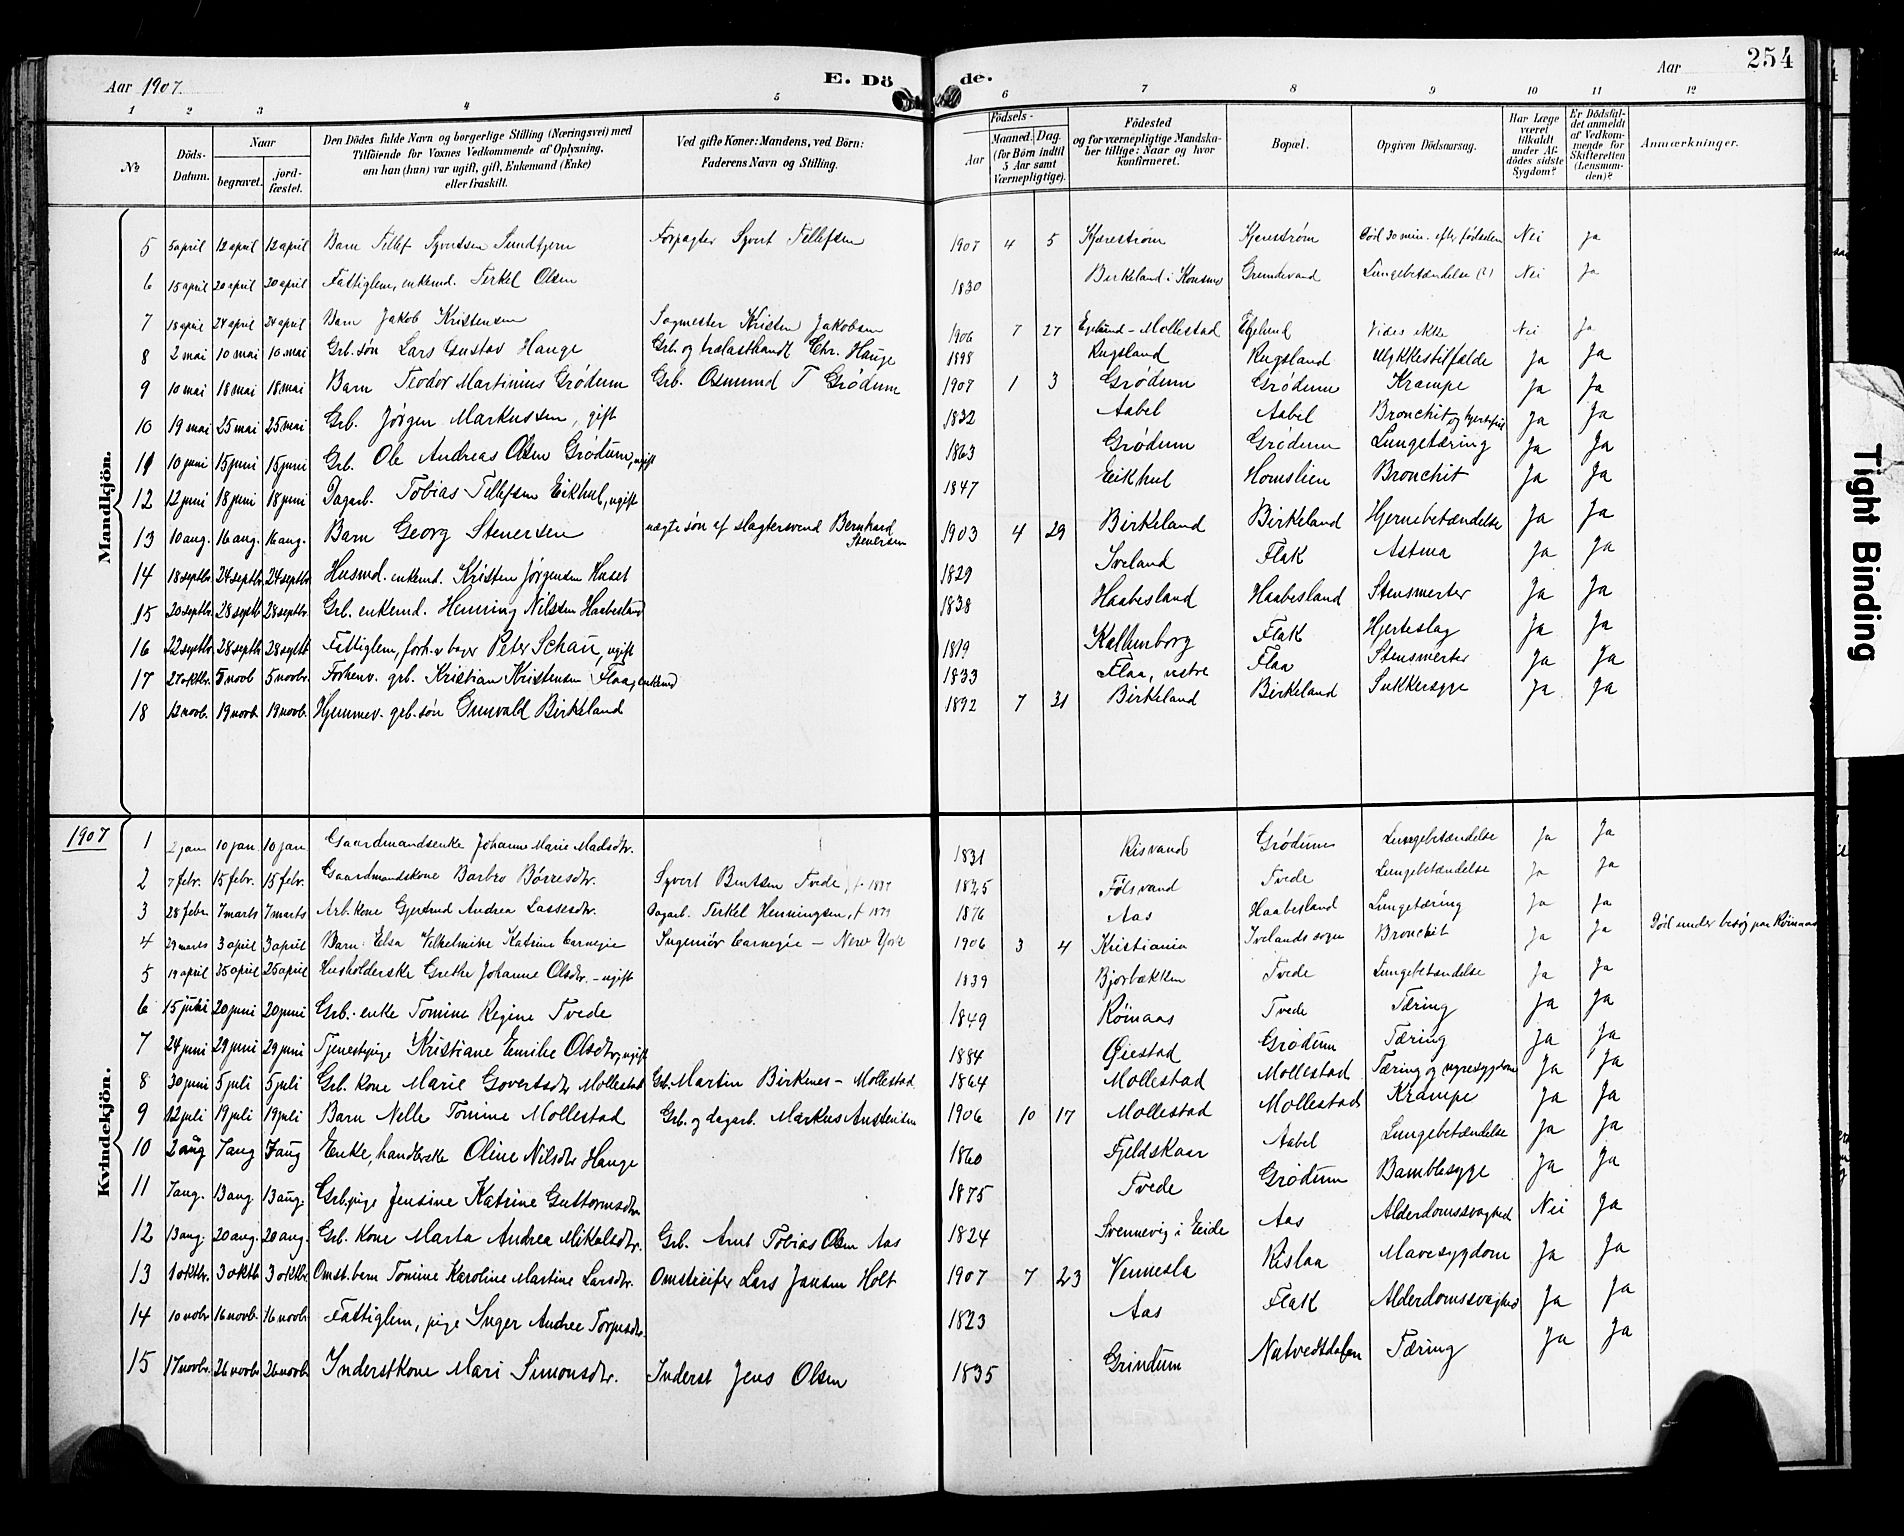 Aar 1907.
E. Dö de.
Aar 254
1 2 3 4 5 6 7 8 9 10 11 12
No
Döds-Datum.
Naar begravet. jordfæstet.
Den Dödes fulde Navn og borgerlige Stilling (Næringsvei) med Tilföiende for Voxnes Vedkommende af Oplysning, om han (hun) var ugift, gift, Enkemand (Enke) eller fraskilt.
Ved gifte Koner: Mandens, ved Börn: Faderens Navn og Stilling.
Födsels- Aar Maaned. Dag. (for Börn indtil 5 Aar samt Værnepligtige).
Födested og for værnepligtige Mandskaber tillige: Naar og hvor konfirmeret.
Bopæl.
Opgiven Dödsaarsag.
Har Læge været tilkaldt under Afdödes sidste Sygdom?
Er Dödsfaldet anmeldt af Vedkommende for Skifteretten (Lensmanden)?
Anmærkninger.
Mandkjön.
5 5 april 12 april 12 april Barn Tellef Syvertsen Sundtjern Forpagter Syvert Tellefsen 1907 4 5 Kjærestrøm Kjærestrøm Død 30 min. efter fødselen Nei Ja
6 15 april 20 april 20 april Fattiglem, enkemd. Terkel Olsen 1830 Birkeland i Konsmo Grundevand Lungebetændelse (?) Nei Ja
7 18 april 24 april 24 april Barn Jakob Kristensen Sagmester Kristen Jakobsen 1906 7 27 Egelund - Mollestad Egelund Vides ikke Nei Ja
8 2 mai 10 mai 10 mai Grb. søn Lars Gustav Hauge Grb. og trælasthandl. Chr. Hauge 1898 Rugsland Rugsland Ulykkestilfælde Ja Ja
9 10 mai 18 mai 18 mai Barn Teodor Martinius Grødum Grb. Osmund T Grødum 1907 1 3 Grødum Grødum Krampe Ja Ja
10 19 mai 25 mai 25 mai Grb. Jørgen Markussen, gift 1832 Aabel Aabel Bronchit og hjertefeil Ja Ja
11 10 juni 15 juni 15 juni Grb. Ole Andreas Olsen Grødum, ugift 1863 Grødum Grødum Lungetæring Ja Ja
12 12 juni 18 juni 18 juni Dagarb. Tobias Tellefsen Eikhul, ugift 1847 Eikhul Homslien Bronchit Ja Ja
13 10 aug. 16 aug. 16 aug. Barn Georg Stenersen uægte søn af slagtersvend Bernhard Stenersen 1903 4 29 Birkeland Birkeland Hjernebetændelse Ja Ja
14 18 septbr. 24 septbr. 24 septbr. Husmd. enkemd. Kristen Jørgensen Huset 1829 Iveland Flak Astma Ja Ja
15 20 septbr. 28 septbr. 28 septbr. Grb. enkemd. Henning Nilssen Haabesland 1838 Haabesland Haabesland Stensmerter Ja Ja
16 22 septbr. 28 septbr. 28 septbr. Fattiglem, forh.v. Peter Schau, ugift 1819 Kallunborg Flak Hjerteslag Ja Ja
17 27 oktbr. 5 novb. 5 novbr. Forhenv. grb. Kristian Kristensen Flaa, enkemd 1833 Flaa, østre Flaa Stensmerter Ja Ja
18 12 novb. 19 novb. 19 novb. Hjemmev. grb. søn Gunvald Birkeland 1892 7 31 Birkeland Birkeland Sukkersyge Ja Ja
1907
Kvindekjön.
1 2 jan 10 jan. 10 jan Gaardmandsenke Johanne Marie Madsdtr. 1831 Risvand Grødum Lungebetændelse Ja Ja
2 7 febr. 15 febr. 15 febr. Gaardmandskone Barbro Børresdtr. Syvert Bentsen Tvede, f. 1827 1825 Følsvand Tvede Lungebetændelse Ja Ja
3 28 febr. 7 marts 7 marts Arb. kone Gjertrud Andrea Lassesdtr. Dagarb. Terkel Henningsen, f. 1879 1876 Aas Haabesland Lungetæring Ja Ja
4 29 marts 3 april 3 april Barn: Elsa Vilhelmine Katrine Carnegie Ingeniør Carnegie - New York 1906 3 4 Kristiania Ivelands sogn Bronchit Ja Ja Død under besøg paa Rømaas
5 19 april 25 april 25 april Husholderske Grethe Johanne Olsdtr. - ugift 1839 Bjorbækken Tvede Lungebetændelse Ja Ja
6 15 juni 20 juni 20 juni Grb. enke Tomine Regine Tvede 1849 Rømaas Tvede Tæring Ja Ja
7 24 juni 29 juni 29 juni Tjenestepige Kristiane Emilie Olsdtr, ugift 1884 Øiestad Grødum Tæring Ja Ja
8 30 juni 5 juli 5 juli Grb. kone Marie Govertsdtr Mollestad Grb. Martin Birkenes - Mollestad 1864 Mollestad Mollestad Tæring og nyresygdom Ja Ja
9 12 juli 19 juli 19 juli Barn Nelle Tomine Mollestad Grb. og dagarb. Markus Anstensen 1906 10 17 Mollestad Mollestad Krampe Ja Ja
10 2 aug 7 aug 7 aug Enke, handlerske Oline Nilsdtr Hauge 1860 Fjeldskaar Aabel Lungebetændelse Ja Ja
11 7 aug. 13 aug. 13 aug. Grb. pige Jensine Katrine Guttormsdtr 1875 Tvede Grødum Bamblesyge Ja Ja
12 13 aug. 20 aug. 20 aug. Grb. kone Marta Andrea Mikalsdtr. Grb. Arnt Tobias Olsen Aas 1824 Svennevig i Eide Aas Alderdomssvaghed Nei Ja
13 1 oktbr. 3 oktb. 3 oktbr. Omst. barn Tomine Karoline Martine Larsdtr. Omstreifer Lars Jansen Holt 1907 7 23 Vennesla Rislaa Mavesygdom Ja Ja
14 10 nobr 16 novb. 16 novbr. Fattiglem, pige Inger Andree Torjusdtr. 1823 Aas Flak Alderdomssvaghed Ja Ja
15 17 novbr. 26 novbr 26 novbr Inderstkone Mari Simonsdtr. Inderst Jens Olsen 1835 Grindum Natvedtdalen Tæring Ja Ja
Tight Binding